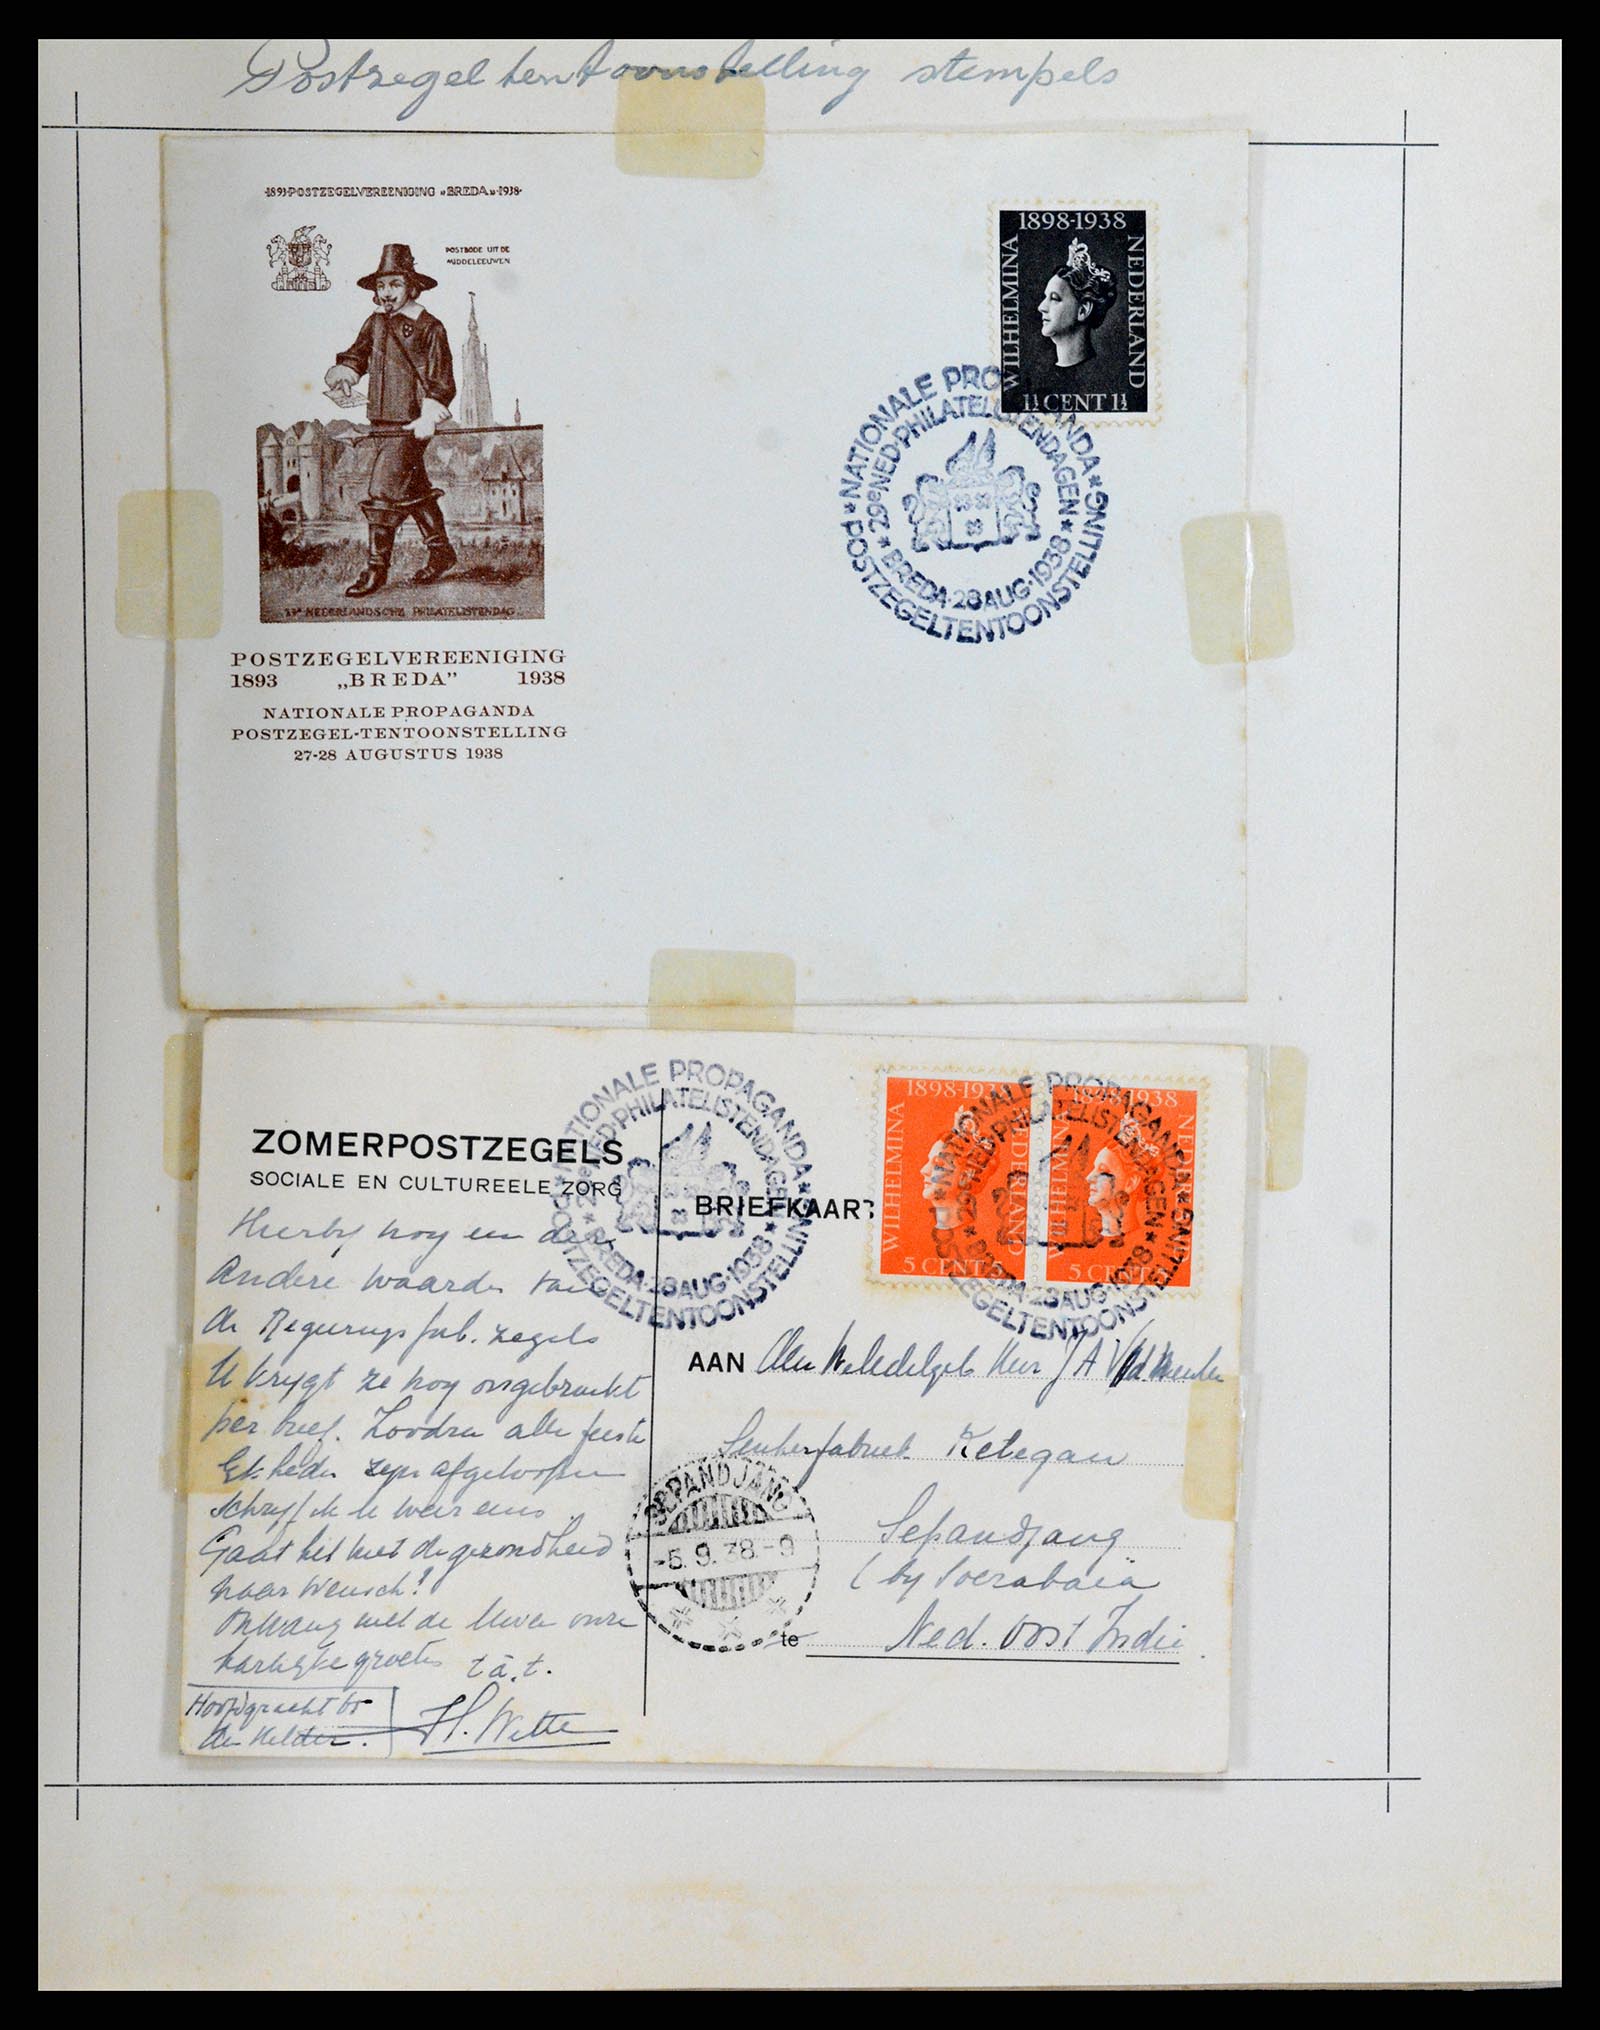 Postzegeltentoonstelling stempels
·1893·POSTZEGELVEREENIGING „BREDA„·1938·
POSTBODE UIT DE
MIDDELEEUWEN
29e NEDERLANDSCHE PHILATELISTENDAG
POSTZEGELVEREENIGING
1893 „BREDA” 1938
NATIONALE PROPAGANDA
POSTZEGEL-TENTOONSTELLING
27-28 AUGUSTUS 1938
1898-1938
WILHELMINA
NEDERLAND
1½ CENT 1½
★NATIONALE PROPAGANDA★
POSTZEGELTENTOONSTELLING
★29e NED·PHILATELISTENDAGEN★
BREDA·28AUG·1938
ZOMERPOSTZEGELS
SOCIALE EN CULTUREELE ZORG
Hierby nog en der
Andere waarden van
de Regeringsjub. zegels
U krygt ze nog ongebruikt
per brief. Zoodra alle feeste
lykheden zyn afgeloopen
schryf ik U weer eens.
Gaat het met de gezondheid
naar Wensch?
Ontvang met de Uwen onze
hartelyke groeten t.à.t.
Hoofdgracht
den Helder.
H. Witte
★NATIONALE PROPAGANDA★
POSTZEGELTENTOONSTELLING
★29e NED·PHILATELISTENDAGEN★
BREDA·28AUG·1938
BRIEFKAART
1898-1938
WILHELMINA
NEDERLAND
5 CENT 5
1898-1938
WILHELMINA
NEDERLAND
5 CENT 5
★NATIONALE PROPAGANDA★
POSTZEGELTENTOONSTELLING
★29e NED·PHILATELISTENDAGEN★
BREDA·28AUG·1938
AAN den WelEdelgeb Heer J A
Suikerfabriek Ketegan
Sepandjang
(by Soerabaia
te Ned. Oost Indië
SEPANDJANG
-5.9.38.-9